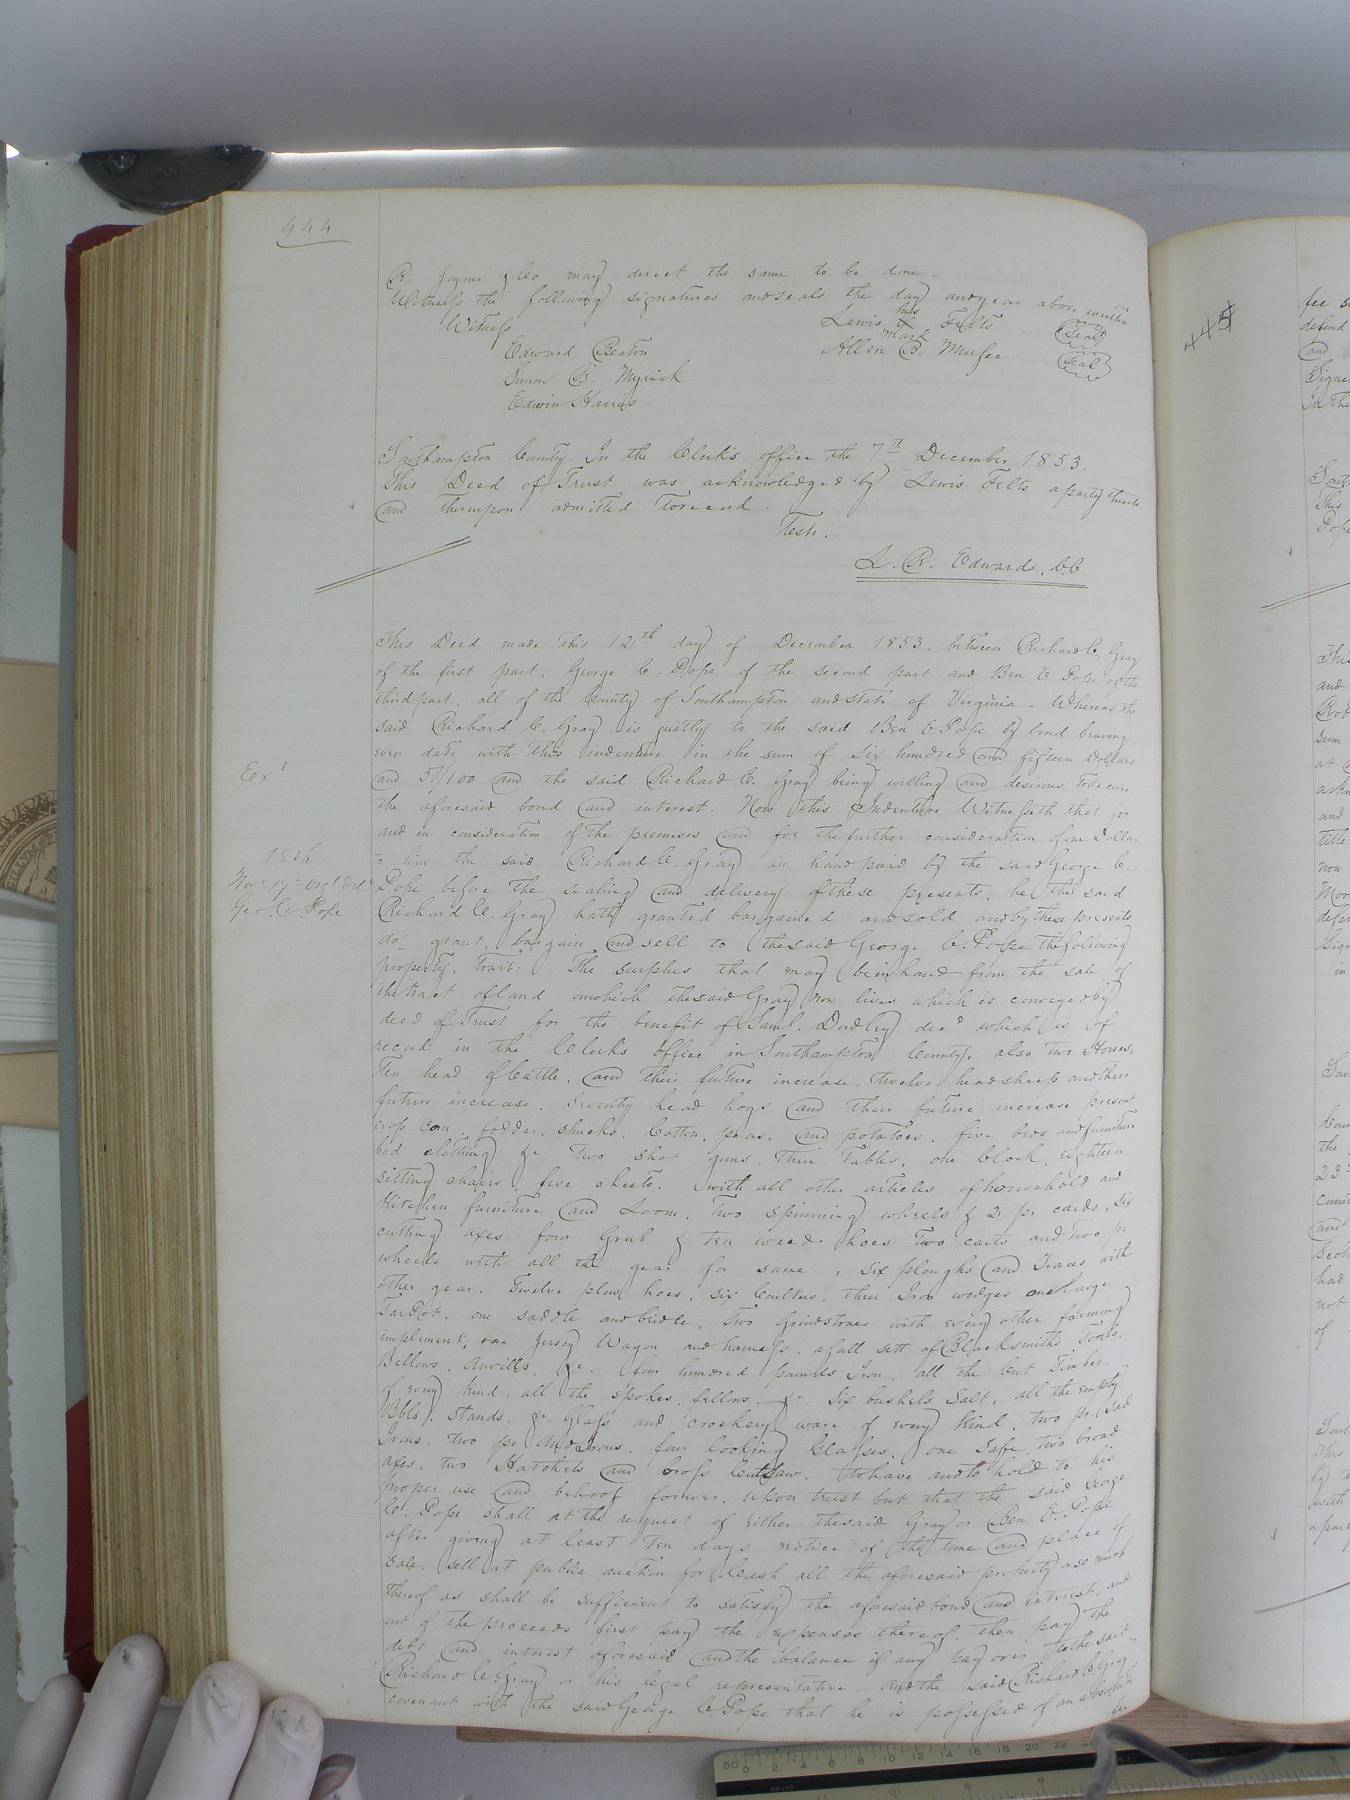 444
R. Joyner & Co may direct the same to be done.
Witness the following signatures and seals the day and year above written
Witness
Lewis his X mark Felts (seal)
Edward Beaton
Allen B. (seal)
Simon B. Myrick
Edwin Harris.
Southampton County. In the Clerk's office the 7th December 1853.
This Deed of Trust was acknowledged by Lewis Felts a party thereto
and thereupon admitted to record.
Teste.
L. R. Edwards, C.C.
This Deed made this 12th day of December 1853. between Richard C. Gray
of the first part, George C. Pope of the second part and Ben E. Pope of the
third part, all of the County of Southampton and state of Virginia - Whereas the
said Richard C. Gray is justly to the said Ben E. Pope by bond bearing
even date with this indenture in the sum of six hundred and fifteen Dollars
and 57/100 and the said Richard C. Gray being willing and desirous to secure
the aforesaid bond and interest. Now this Indenture Witnesseth that for
and in consideration of the premises and for the further consideration of one Dollar
to him the said Richard C. Gray in hand paid by the said George C.
Pope before the sealing and delivery of these presents, he the said
Richard C. Gray hath granted bargained and sold and by these presents
do grant, bargain and sell to the said George C. Pope the following
property, to wit: The surplus that may be in hand from the sale of
the tract of land on which the said Gray now lives which is conveyed by
deed of Trust for the benefit of Saml. Dudley decd which is of
record in the Clerks office in Southampton County, also two Horses,
Ten head of Cattle, and their future increase, twelve head sheep and their
future increase, seventy head hogs and their future increase present
crop corn, fodder, shucks, Cotton, peas, and potatoes, five beds and furniture
bed clothing &c two shot guns, three Tables, one clock, eighteen
sitting chairs, five chests, with all other articles of household and
Kitchen furniture and Loom, Two spinning wheels & 2 pr cards, six
cutting axes four Grub & ten weed hoes Two carts and two pr
wheels with all the gear for same, six ploughs and Traces with
other gear, Twelve plow hoes, six Coulters, three Iron wedges one large
Tar Pot, one saddle and bridle, Two Grindstones with every other farming
implement, one Jersey Wagon and harness, a full sett of Blacksmiths Tools,
Bellows, Anvills, &c. four hundred pounds Iron, all the cut Timber
of every kind, all the spokes, fellows, &c. Six bushels Salt, all the empty
Bbls, Stands, &c. Glass and crockery ware of every kind, two pr. Sad
Irons, two pr Andirons, four looking Glasses, one Safe, two broad
axes, two Hatchets and Cross Cut Saw. To have and to hold to his
proper use and behoof forever, upon trust but that the said George
C. Pope shall at the request of either the said Gray or Ben E. Pope
after giving at least Ten days notice of the time and place of
sale, sell at public auction for Cash all the aforesaid property or so much
thereof as shall be sufficient to satisfy the aforesaid bond and interest, and
out of the proceeds first pay the expenses thereof, then pay the
debt and interest aforesaid and the balance if any pay over to the said
Richard C. Gray or his legal representative. And the said Richard C. Gray
covenant with the said George C. Pope that he is possessed of an absolute
fee
Exd
Geo. C. Pope
445